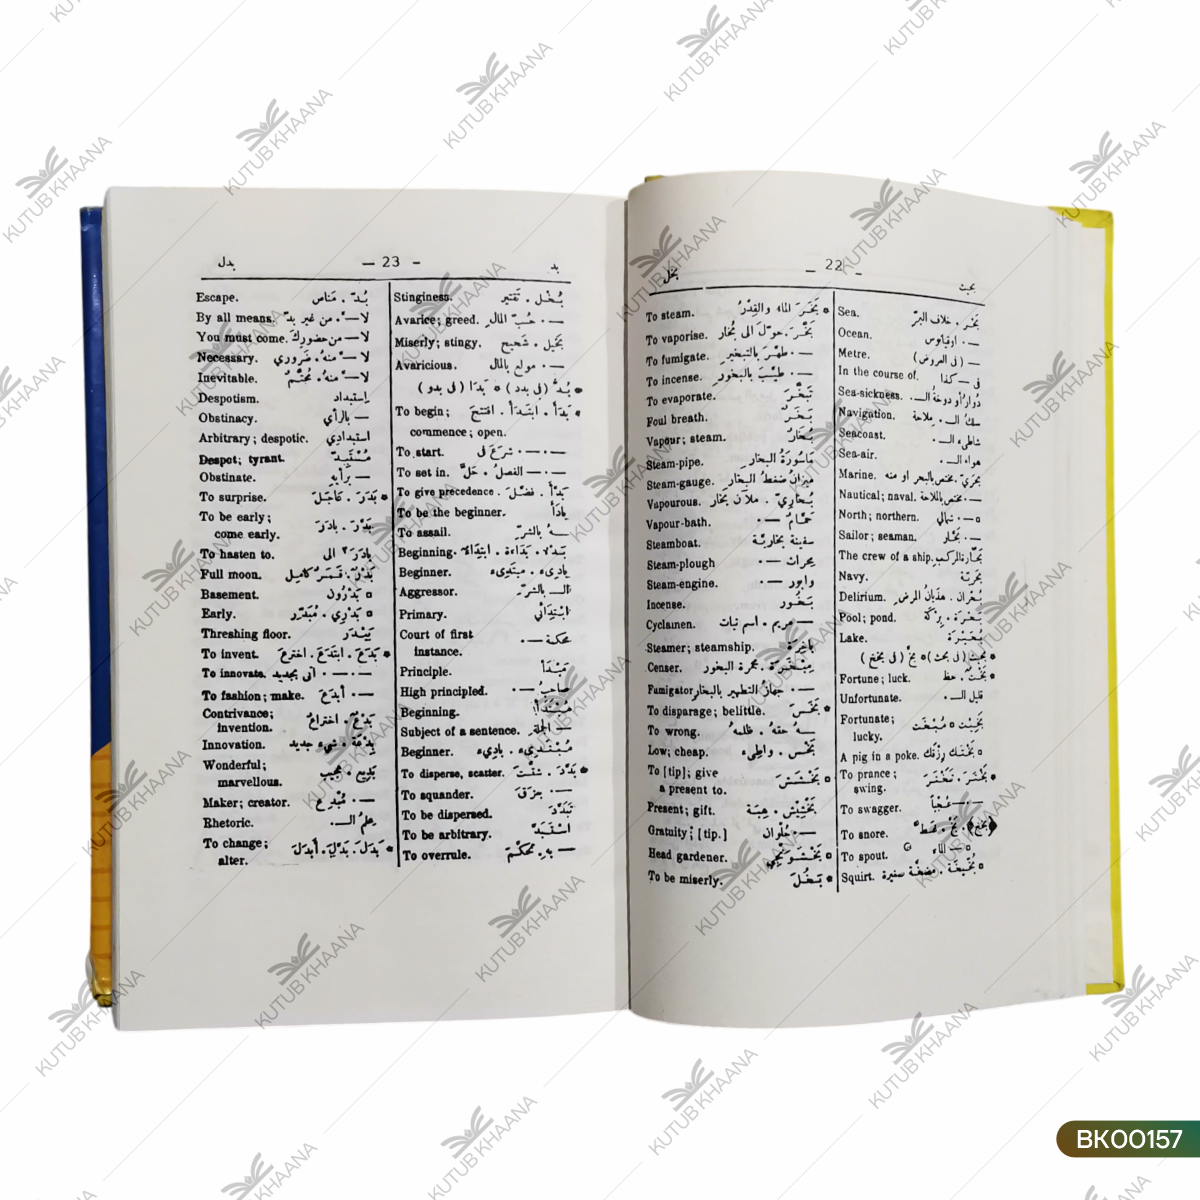 بخل — 22 — بجث
بَحْر . خلاف البرّ Sea.
— . اوقيانوس Ocean.
— (فى العروض) Metre.
فى — كذا In the course of.
دُوار أو دوخة الـ Sea-sickness.
سلك الـ . ملاحة Navigation.
شاطىء الـ . Seacoast.
هواء الـ . Sea-air.
بحري . مختص بالبحر او منه Marine.
— . مختص بالملاحة Nautical; naval.
— . شمالي North; northern.
— . بَحَّار Sailor; seaman.
بحّارة المركب The crew of a ship.
بحريّة Navy.
بُحْران . هذيان المرض Delirium.
بَحْرَة . بِركة Pool; pond.
بُحَيْرَة Lake.
بحيث (فى حيث) بخّ (فى بخخ)
بَخْت . حظ Fortune; luck.
قليل الـ . Unfortunate.
بَخِيت مُبْخَت Fortunate; lucky.
A pig in a poke.
بَخْتَرَ . تَبَخْتَرَ To prance; swing.
— To swagger.
To snore.
— الماء To spout.
Squirt.
بَخَّرَ الماء والقِدْرُ To steam.
بَخَّرَ . حوّل الى بُخار To vaporise.
— . طهّر بالتبخير To fumigate.
— . طيّب بالبخور To incense.
تَبَخَّرَ To evaporate.
بَخَر Foul breath.
بُخار Vapour; steam.
ماسورة البخار Steam-pipe.
ميزان ضغط البخار Steam-gauge.
بُخاريّ . ملآن بخار Vapourous.
حَمّام — . Vapour-bath.
سفينة بخارية Steamboat.
محراث — . Steam-plough
وابور — . Steam-engine.
بَخُور Incense.
— مريم . اسم نبات Cyclamen.
باخرة Steamer; steamship.
مِبْخَرَة . مجمرة البخور Censer.
— . جهاز التطهير بالبخار Fumigator
بَخَسَ To disparage; belittle.
— ـه حقه . ظلمه To wrong.
بَخْس . واطىء Low; cheap.
بَخْشَشَ To [tip]; give a present to.
بَخْشِيش . هِبَة Present; gift.
— . حُلوان Gratuity; [tip.]
Head gardener.
بَخُلَ To be miserly.
بدل — 23 — بد
بُخْل . تقتير Stinginess.
— . حُبّ المال Avarice; greed.
بَخيل . شحيح Miserly; stingy.
— . مولع بالمال Avaricious.
بُدّ (فى بدد) بَدَا (فى بدو)
بَدَأ . ابتدأ . افتتح To begin; commence; open.
— . — . شرع فى To start.
— . — الفصل . حَلّ To set in.
بَدَّأ . فضّل To give precedence.
بادَأ To be the beginner.
— ـهُ بالشرّ To assail.
بَدْء . بَدَاءة . ابتداء Beginning.
بادىء . مبتدىء Beginner.
الـ بالشرّ Aggressor.
ابتدائي Primary.
محكمة — . Court of first instance.
مَبْدأ Principle.
صاحب — . High principled.
مُبْتَدَأ Beginning.
— الجملة Subject of a sentence.
مُبْتَدِىء . بادىء Beginner.
بَدَّدَ . شتّت To disperse, scatter.
— . بعزق To squander.
تَبَدَّدَ To be dispersed.
اسْتَبَدَّ To be arbitrary.
— بهِ . تحكّم To overrule.
بُدّ . مَناص Escape.
لا — . من غير بدّ By all means.
لا — من حضورك You must come.
لا — منهُ . ضَروري Necessary.
لا — منهُ . مُحَتَّم Inevitable.
إستبداد Despotism.
— بالرأي Obstinacy.
استبدادي Arbitrary; despotic.
مُسْتَبِدّ Despot; tyrant.
— برأيهِ Obstinate.
بَدَرَ . عاجل To surprise.
بَدَرَ . بادَرَ To be early; come early.
بادَرَ الى To hasten to.
بَدْر . قَمَر كامل Full moon.
بَدْرُون Basement.
بَدْري . مُبَدَّر Early.
بَيْدَر Threshing floor.
بَدَعَ . ابتدع . اخترع To invent.
— . — . أتى بجديد To innovate.
— . أبدعَ To fashion; make.
بَدْع . اختراع Contrivance; invention.
بِدْعَة . شىء جديد Innovation.
بَدِيع . عجيب Wonderful; marvellous.
— . مُبْدِع Maker; creator.
علمُ الـ . Rhetoric.
بَدَلَ . بَدَّلَ . أبدَلَ To change; alter.
KUTUB KHAANA
BK00157